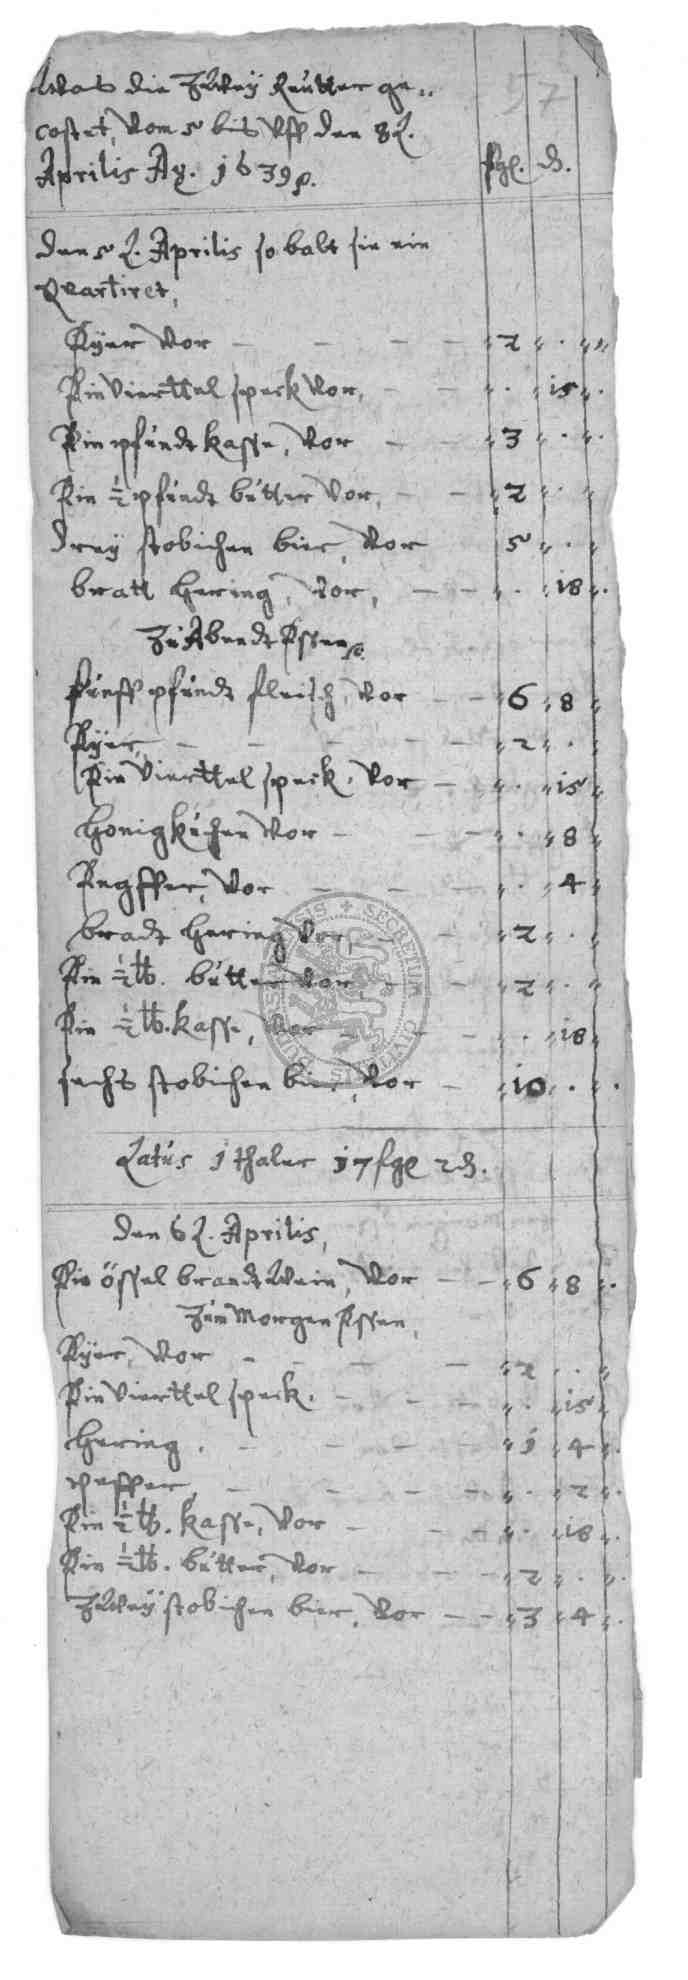 Was die Zwey Reutter ge..
costet, Vom 5 bis Vff den 8t.
Aprilis Aõ. 1639.
57
ßgl. d.
den 5t. Aprilis so balt sie ein
Quartiret,
Eyer Vor — — — — 2 . "
Ein Vierttel speck Vor, — — . 15 .
Ein pfundt kasse, Vor — — 3 . .
Ein ½ pfundt butter Vor, — — 2 . "
drey stobichen bier, Vor 5 . "
bratt Hering, Vor, — — . 18 .
Zu Abendt Essen
fünff pfundt fleisch, Vor — — 6 8 "
Eyer, — — — — — 2 . "
Ein Vierttel speck, Vor — . 15 "
Honigkuchen Vor — — — . 8 "
Vor — — — . 4 "
bradt Hering Vor, — — 2 . "
Ein ½ lb. butter Vor — — 2 . "
Ein ½ lb. kasse, Vor — — — . 18 "
sechs stobichen bier, Vor — 10 . .
SECRETUM CIVITATIS
Latus 1 thaler 17 ßgl 2 d.
den 6t. Aprilis,
Ein össel brandtWein, Vor — — 6 8 .
Zum Morgen Essen,
Eyer, Vor — — — — 2 . "
Ein Vierttel speck. — — — . 15 "
Hering. — — — — 1 4 .
Peffer, — — — — — . 2 .
Ein ½ lb. kasse, Vor — — — . 18 .
Ein ½ lb. butter, Vor — — — 2 . .
Zwey stobichen bier, Vor — — 3 4 .